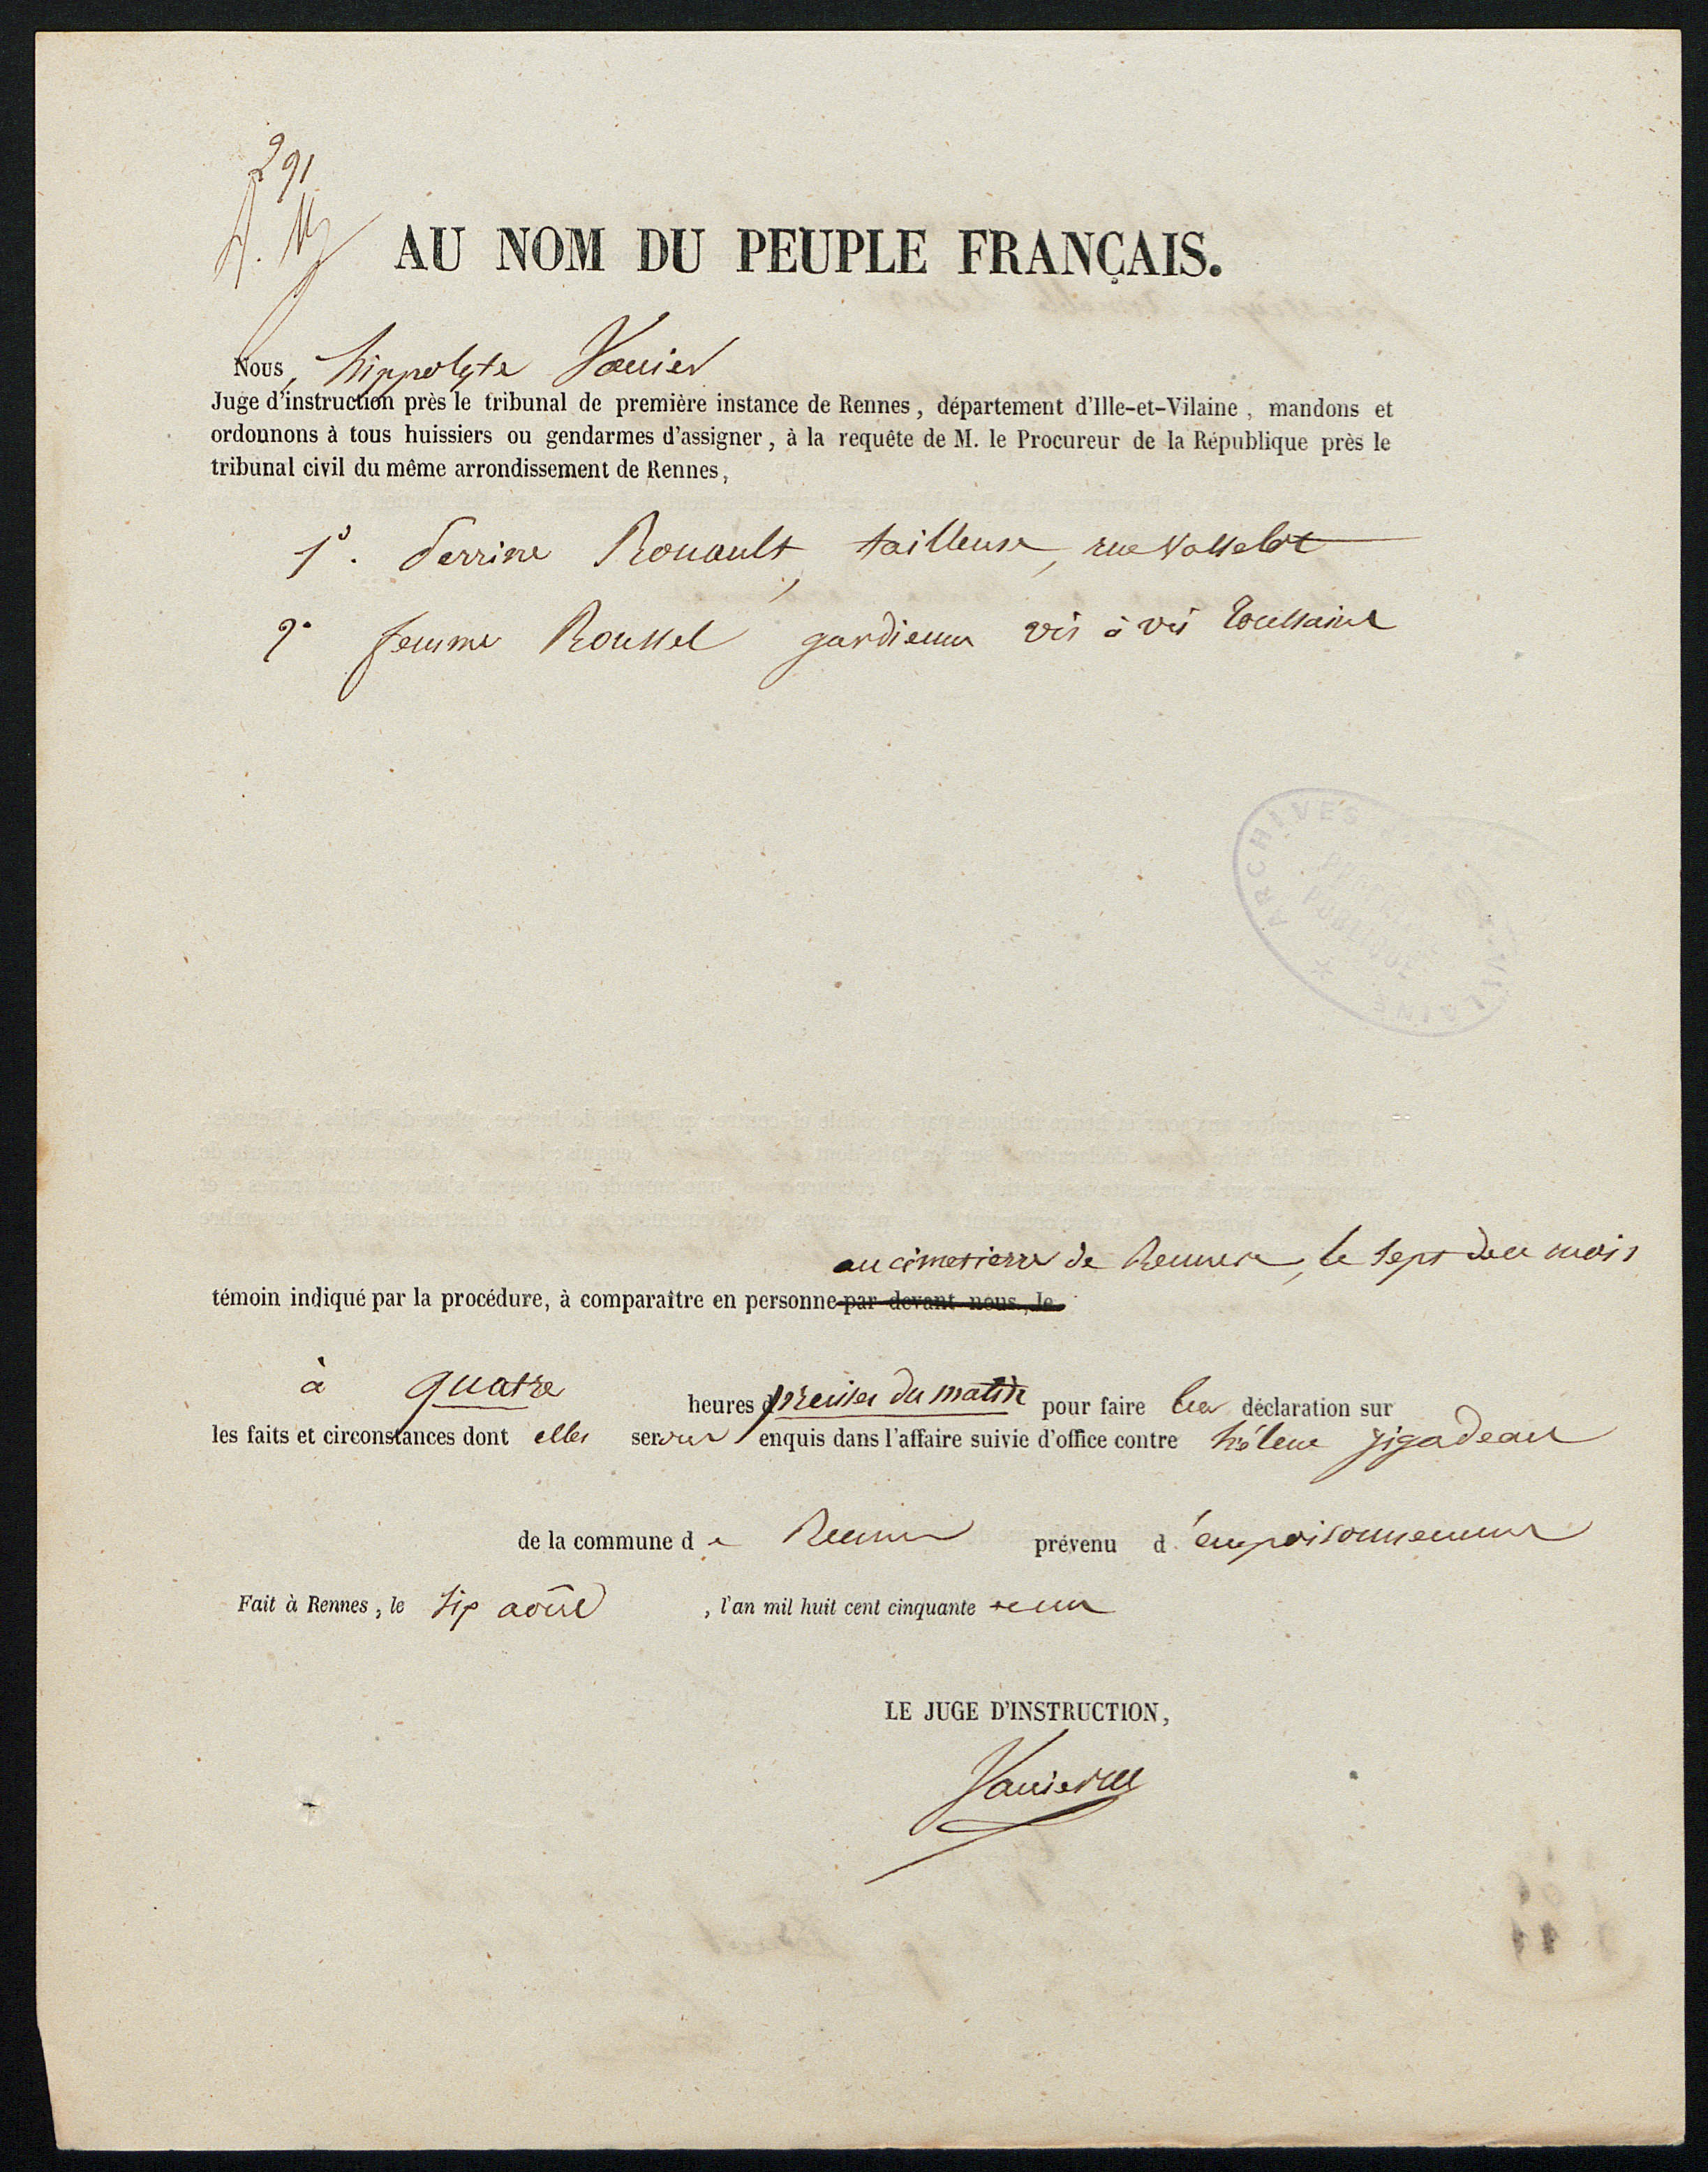 291
A. M
AU NOM DU PEUPLE FRANÇAIS.
Nous, hippolyte Vanier
Juge d'instruction près le tribunal de première instance de Rennes, département d'Ille-et-Vilaine, mandons et
ordonnons à tous huissiers ou gendarmes d'assigner, à la requête de M. le Procureur de la République près le
tribunal civil du même arrondissement de Rennes,
1°. Perrine Rouault, tailleuse, rue Vasselot
2° femme Roussel gardienne vis à vis Toussaint
ARCHIVES D'ILLE-&-VILAINE
PROPRIÉTÉ
PUBLIQUE
au cimetierre de Rennes, le sept du mois
témoin indiqué par la procédure, à comparaître en personne par devant nous, le
à quatre heures précises du matin pour faire leur déclaration sur
les faits et circonstances dont elles seront enquis dans l'affaire suivie d'office contre hélène jégadeau
de la commune de Rennes prévenu d'empoisonnement
Fait à Rennes, le six août, l'an mil huit cent cinquante et un
LE JUGE D'INSTRUCTION,
Vanier